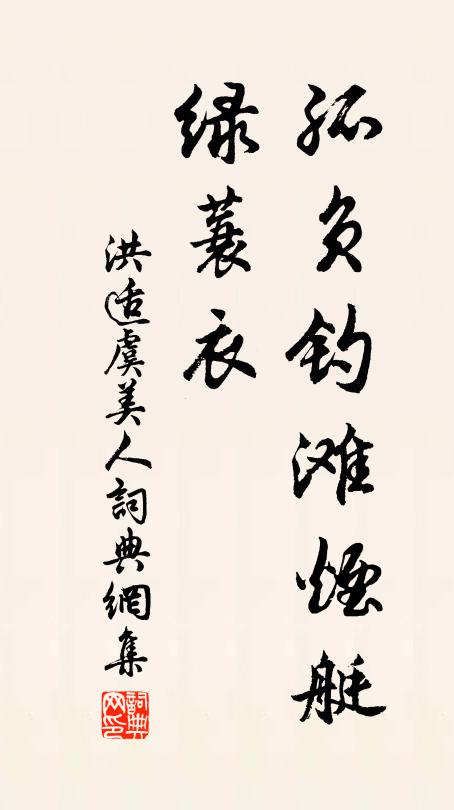 孤负钓滩煙艇
绿蓑衣
洪适虞美人詞典網集
詞典网印